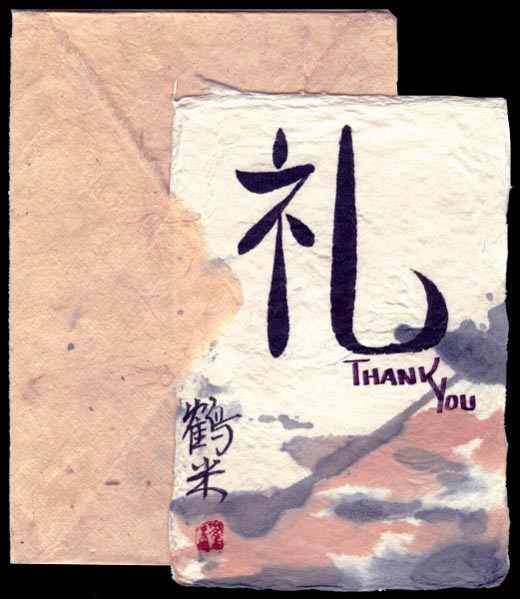 礼
THANK
YOU
鶴
米